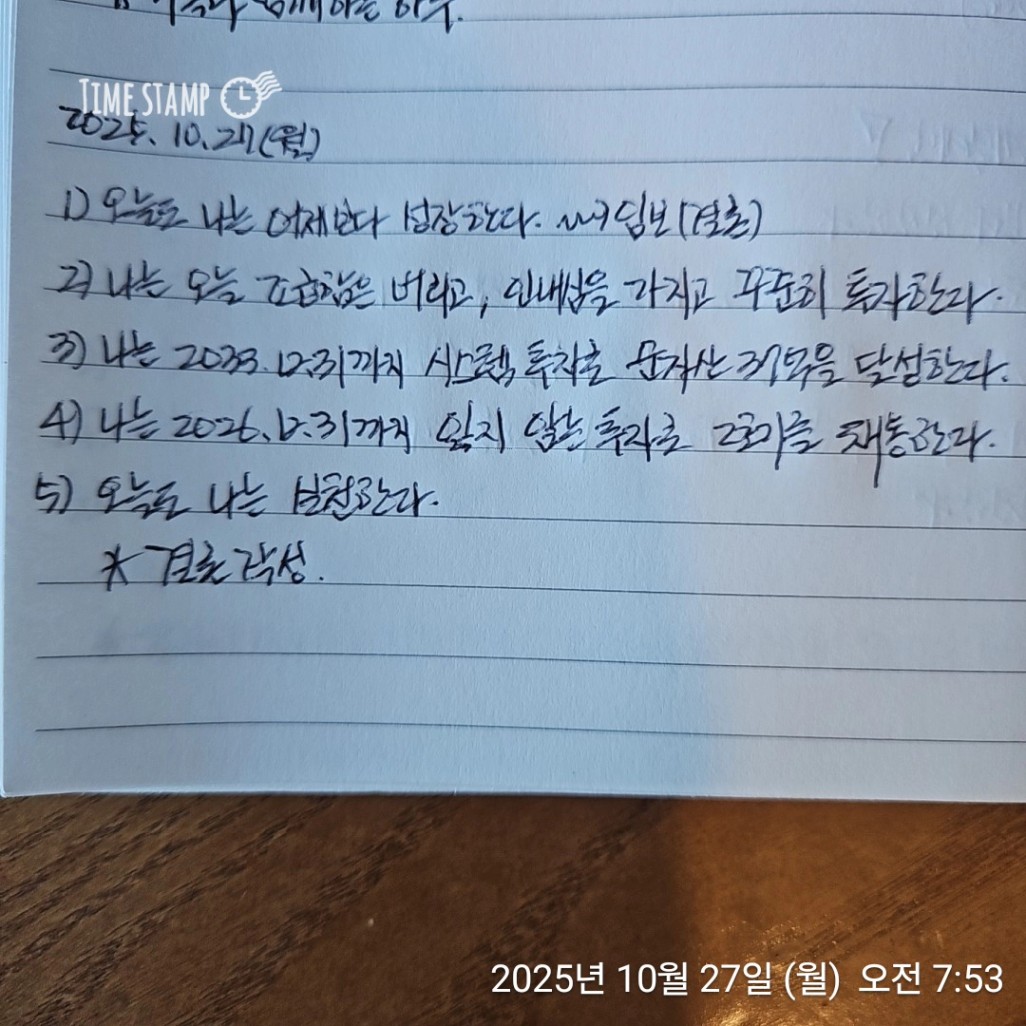 함께하는 하루.
TIME STAMP
2025. 10. 27(월)
1) 오늘도 나는 어제보다 성장한다. 임보(결론)
2) 나는 오늘 조급함은 버리고, 인내심을 가지고 꾸준히 투자한다.
3) 나는 2033.12.31까지 시스템 투자로 순자산 37억을 달성한다.
4) 나는 2026.12.31까지 잃지 않는 투자로 2호기를 재통한다.
5) 오늘도 나는 실천한다.
* 결론 작성.
2025년 10월 27일 (월) 오전 7:53